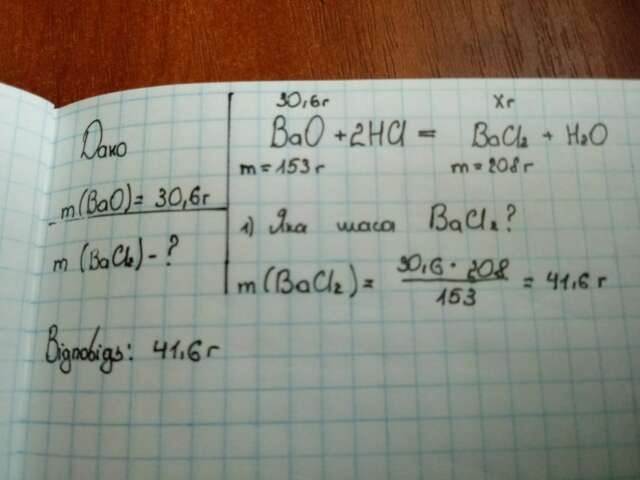 Дано
m(BaO) = 30,6г
m(BaCl₂) - ?
30,6г xг
BaO + 2HCl = BaCl₂ + H₂O
m = 153 г m = 208 г
1) Яка маса BaCl₂?
m(BaCl₂) = 30,6 · 208 / 153 = 41,6 г
Відповідь: 41,6 г